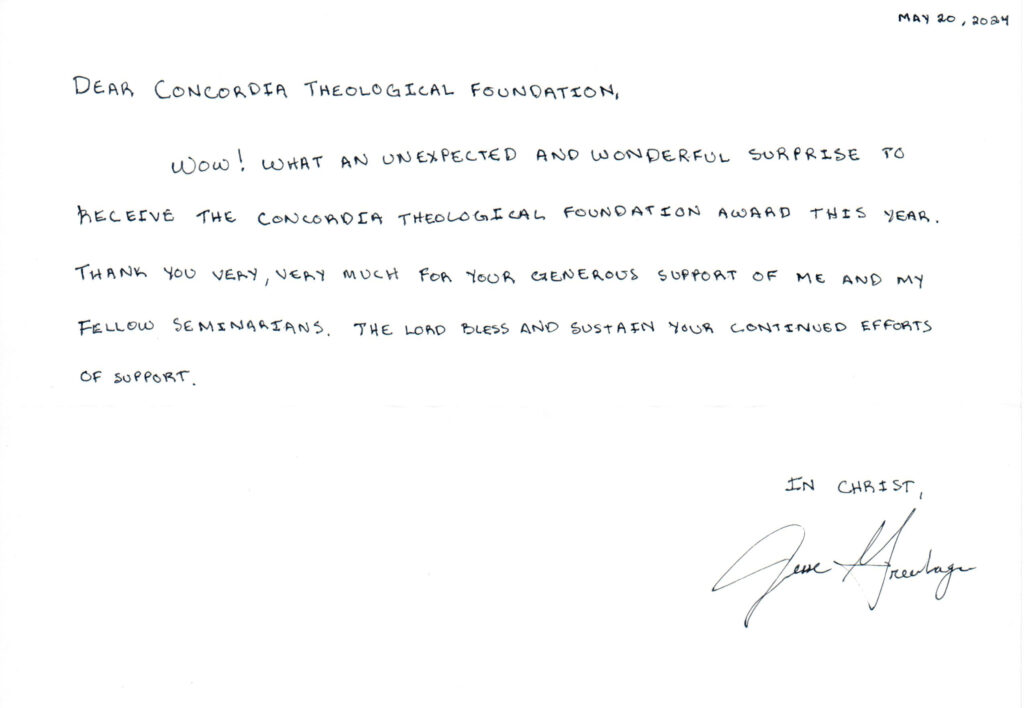 MAY 20, 2024
DEAR CONCORDIA THEOLOGICAL FOUNDATION,
WOW! WHAT AN UNEXPECTED AND WONDERFUL SURPRISE TO
RECEIVE THE CONCORDIA THEOLOGICAL FOUNDATION AWARD THIS YEAR.
THANK YOU VERY, VERY MUCH FOR YOUR GENEROUS SUPPORT OF ME AND MY
FELLOW SEMINARIANS. THE LORD BLESS AND SUSTAIN YOUR CONTINUED EFFORTS
OF SUPPORT.
IN CHRIST,
Jesse